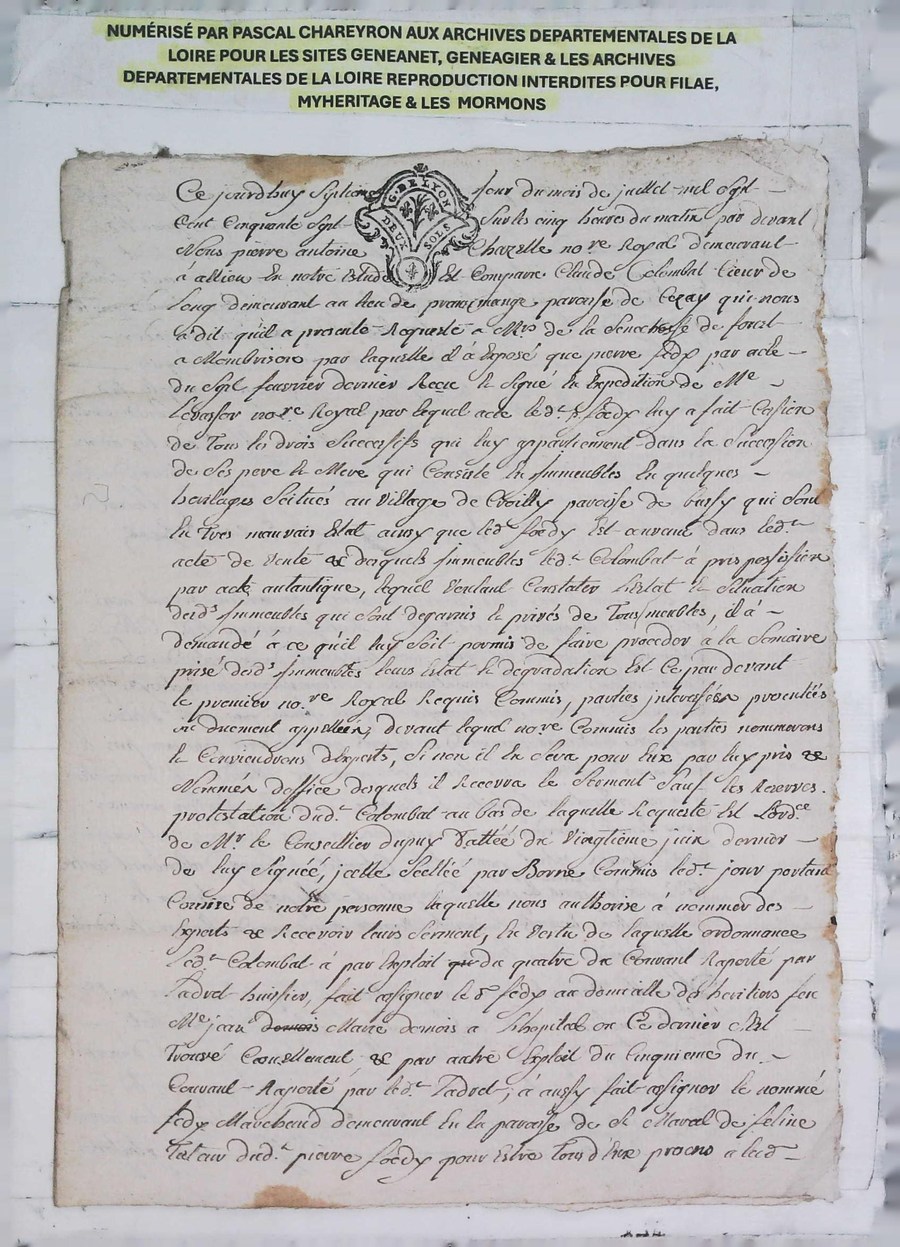 NUMÉRISÉ PAR PASCAL CHAREYRON AUX ARCHIVES DEPARTEMENTALES DE LA
LOIRE POUR LES SITES GENEANET, GENEAGIER & LES ARCHIVES
DEPARTEMENTALES DE LA LOIRE REPRODUCTION INTERDITES POUR FILAE,
MYHERITAGE & LES MORMONS
G. DE LYON
DEUX SOLS
Ce jourdhuy Septieme jour du mois de juillet mil Sept
Cent Cinquante Sept Sur les cinq heures du matin par devant
Nous pierre antoine Chazelle nore Royal demeurant
à allieu En notre Etude Est Comparu Claude Colombat tieur de
Long demeurant au lieu de paroisse de Cezay qui nous
a dit qu'il a presenté Requeste a Mrs de la Senechossé de forest
a Montbrison par laquelle il à Exposé que pierre fedy par acte
du Sept fevrier dernier Reçue Et Signé En Expedition de Me
Levasser nore Royal par lequel acte led.t foedy luy a fait Cession
de Tous les drois Successifs qui luy appartiennent dans la Succession
de Ses pere Et Mere qui Consiste En Immeubles En quelques
heritages Scitués au Village de paroisse de bussy qui Sont
En tres mauvais Estat ainsy que led foedy Est dans led.t
acte de Vente & desquels Immeubles led.t Colombat à pris possission
par acte autantique, lequel Voulant Constater L'estat Et Situation
desds Immeubles qui Sont degarnis Et privés de Tous meubles, il à
demandé à ce qu'il luy Soit permis de faire proceder à la Somaire
prisé desds Immeubles leurs Estat Et dégradation Est Ce par devant
le premier no.re Royal Requis Commis, parties interessées presentées
ou duement appellées, devant lequel nore Commis les parties nommerons
Et Conviendrons d'Experts, Si non il En Sera pour Eux par luy pris &
Nommés d'office desquels il Recevra le Serment Sauf les Reserves.
protestation dud.t Colombat au bas de laquelle Requeste Est Lord.ce
de Mr. le Conseillier dupuy dattée du Vingtieme juin dernier
de luy Signée, jcelle Scellée par Borne Commis led.t jour portant
Commise de notre personne laquelle nous authorise à nommer des
Experts & Recevoir leurs Serment, En Vertu de laquelle ordonnance
led.t Colombat à par Exploit du quatre du Courant Raporté par
Tadret huissier, fait assigner led fedy au domicille des heritiers feu
Me jean Maire demois a Lhopital ou Ce dernier Est
Trouvé & par autre Exploit du Cinquieme du
Courant Raporté par led.t Tadret, à aussy fait assigner le nommé
fedy Marchand demeurant En la paroisse de St Marcel de feline
Tuteur dud.t pierre foedy pour Estre Tous d'Eux presens à lad